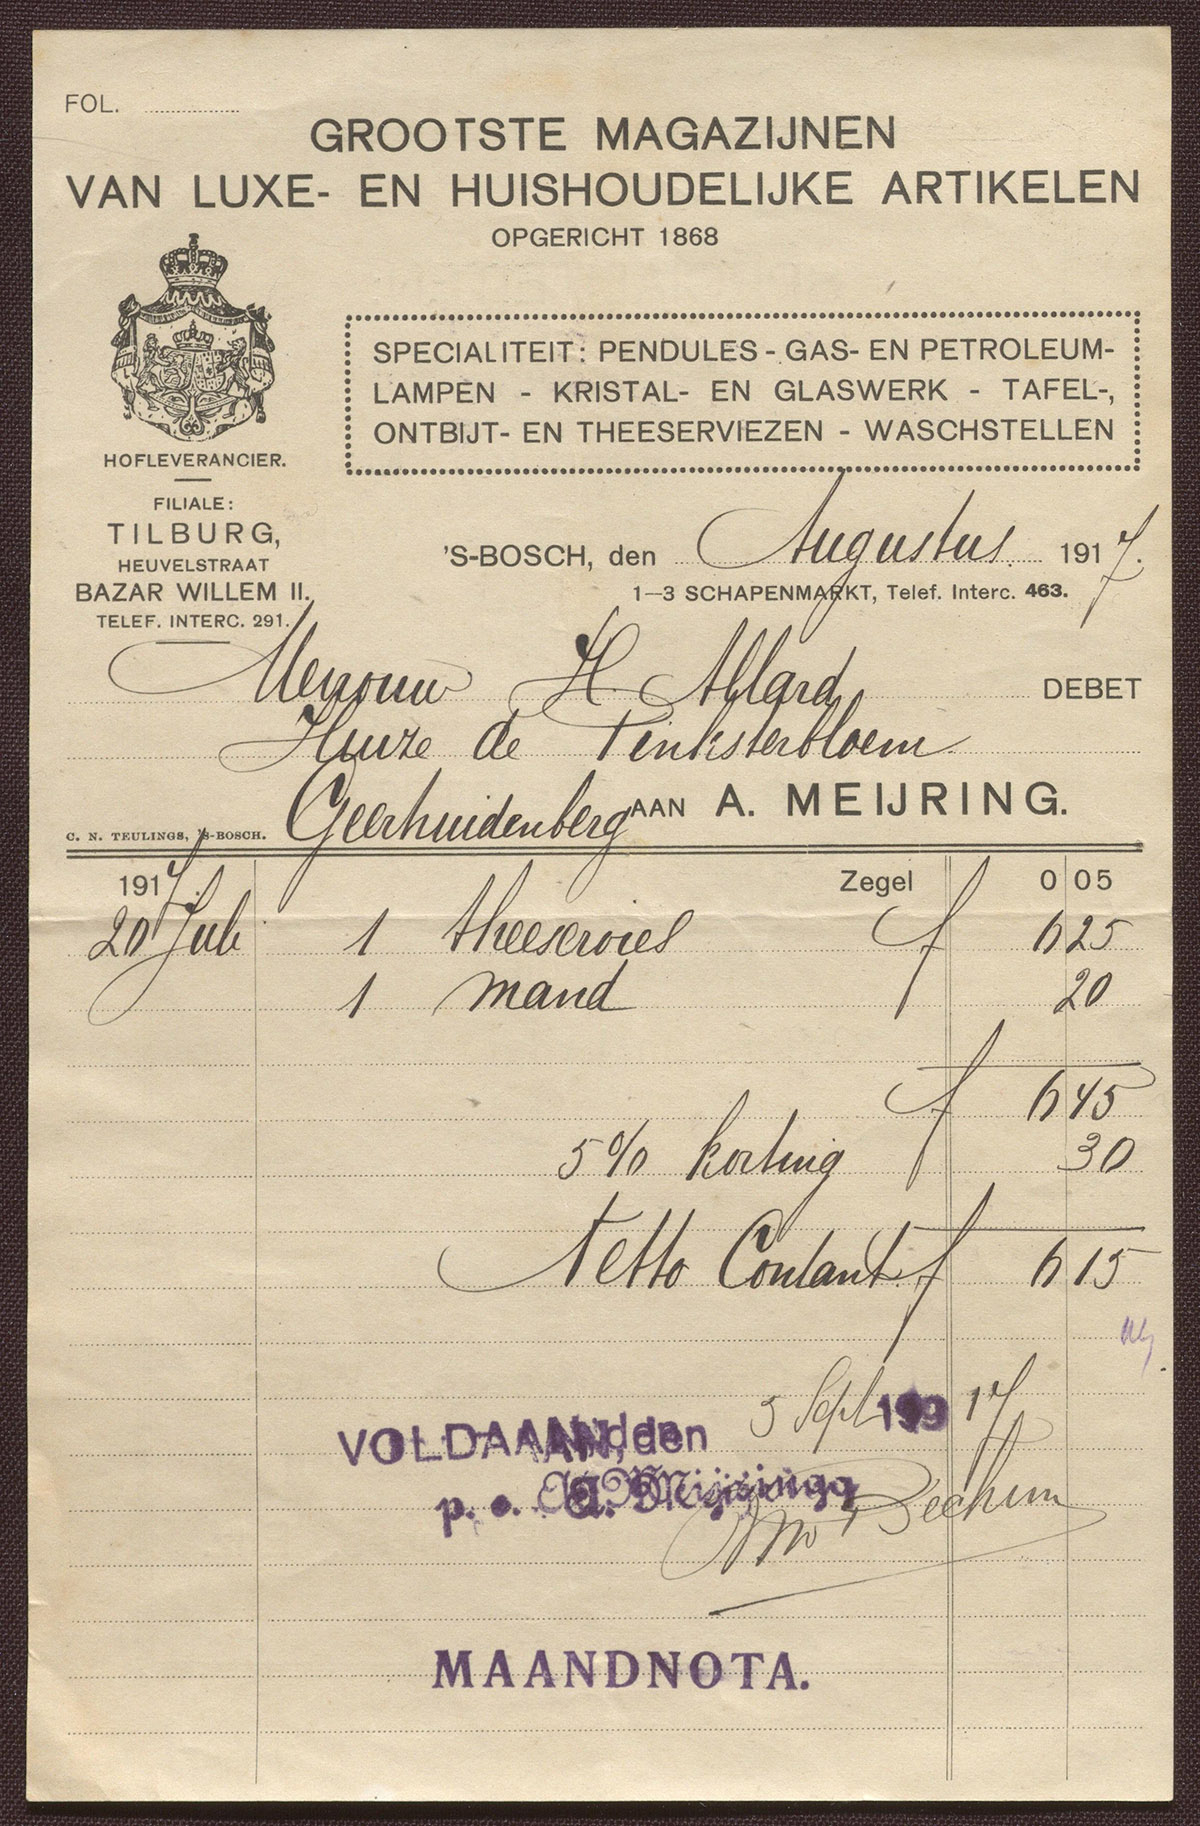 FOL.
GROOTSTE MAGAZIJNEN
VAN LUXE- EN HUISHOUDELIJKE ARTIKELEN
OPGERICHT 1868
SPECIALITEIT: PENDULES - GAS- EN PETROLEUM-
LAMPEN - KRISTAL- EN GLASWERK - TAFEL-,
ONTBIJT- EN THEESERVIEZEN - WASCHSTELLEN
HOFLEVERANCIER.
FILIALE:
TILBURG,
HEUVELSTRAAT
BAZAR WILLEM II.
TELEF. INTERC. 291.
'S-BOSCH, den Augustus 1917.
1-3 SCHAPENMARKT, Telef. Interc. 463.
Mevrouw H. Allard DEBET
Huize de Pinksterbloem
Geerhuidenberg AAN A. MEIJRING.
C. N. TEULINGS, 'S-BOSCH.
1917. Zegel 0 05
20 Juli 1 theeservies f 6 25
1 mand 20
f 6 45
5% korting 30
Netto Contant f 6 15
VOLDAAN, den 3 Sept 19 17
p. o. A. Meijring
MAANDNOTA.